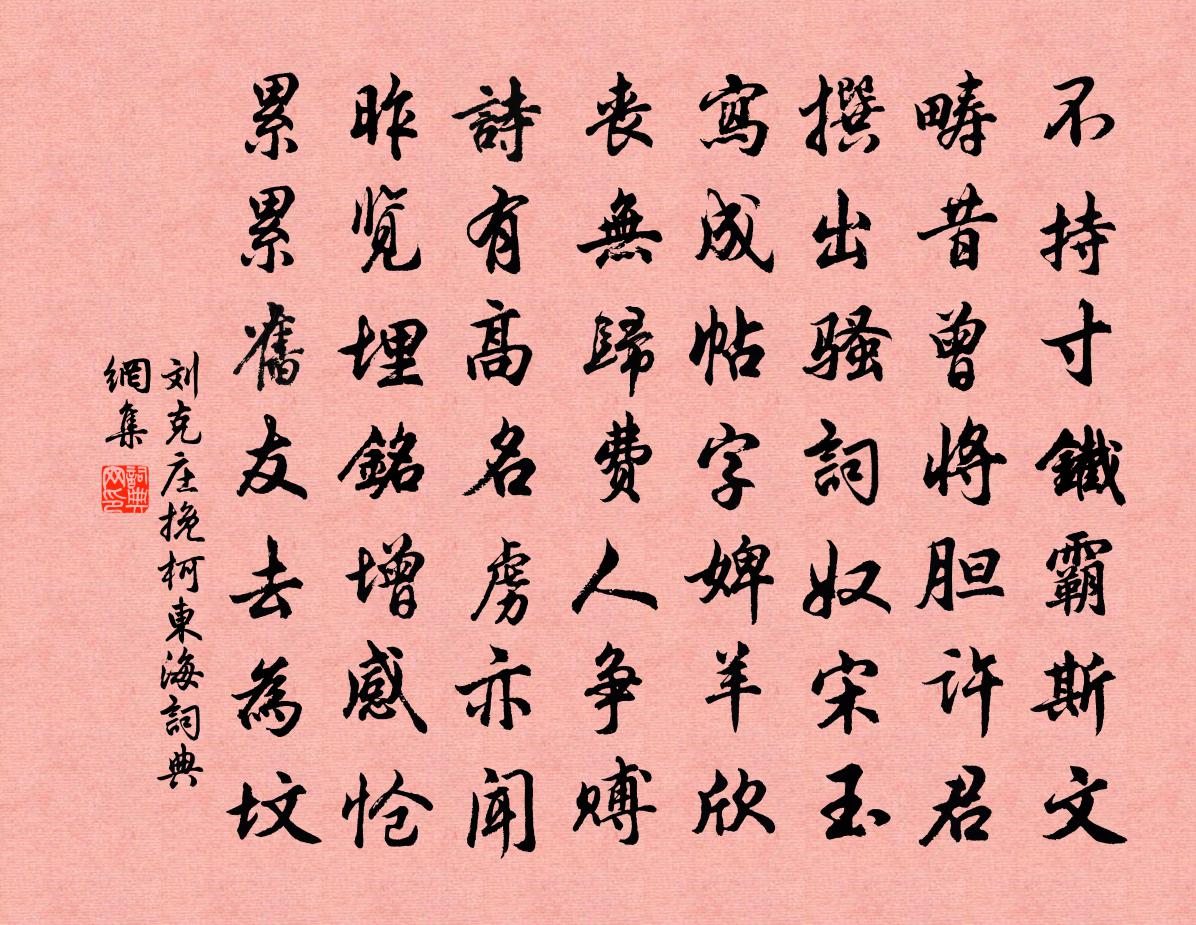 不持寸鐵霸斯文
疇昔曾将胆许君
撰出骚詞奴宋玉
寫成帖字婢羊欣
丧無歸費人争賻
詩有高名虏亦闻
昨览埋銘增感怆
累累舊友去為坟
刘克庄挽柯東海詞典
網集
詞典